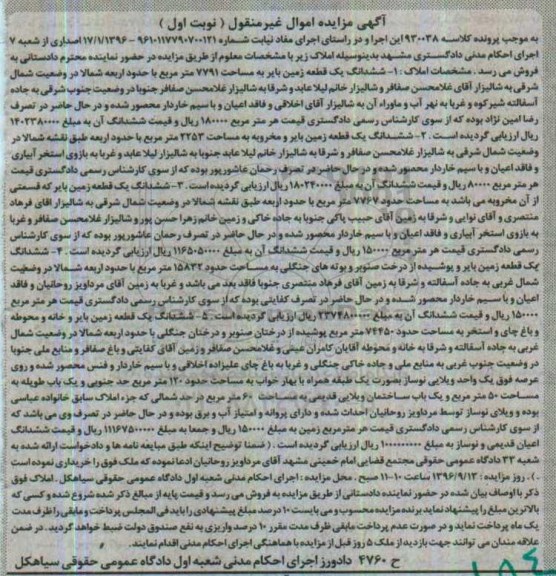 آگهی مزایده اموال غیرمنقول ( نوبت اول )
به موجب پرونده کلاسه ۹۳۰۰۳۸ این اجرا و در راستای اجرای مفاد نیابت شماره ۹۶۱۰۱۱۷۷۹۰۷۰۰۱۲۱ - ۱۷/۱/۱۳۹۶ اصداری از شعبه ۷
اجرای احکام مدنی دادگستری مشهد بدینوسیله املاک زیر با مشخصات معلوم از طریق مزایده در حضور نماینده محترم دادستانی به
فروش می رسد . مشخصات املاک : ۱- ششدانگ یک قطعه زمین بایر به مساحت ۷۷۹۱ متر مربع با حدود اربعه شمالا در وضعیت شمال
شرقی به شالیزار آقای غلامحسن صفافر و شالیزار خانم لیلا عابد و شرقا به شالیزار غلامحسن صفافر جنوبا در وضعیت جنوب شرقی به جاده
آسفالته شیرکوه و غربا به نهر آب و ماوراء آن به شالیزار آقای اخلاقی و فاقد اعیان و با سیم خاردار محصور شده و در حال حاضر در تصرف
رضا امین نژاد بوده که از سوی کارشناس رسمی دادگستری قیمت هر متر مربع ۱۸۰۰۰۰ ریال و قیمت ششدانگ آن به مبلغ ۱۴۰۲۳۸۰۰۰۰
ریال ارزیابی گردیده است . ۲- ششدانگ یک قطعه زمین بایر و مخروبه به مساحت ۲۲۵۳ متر مربع با حدود اربعه طبق نقشه شمالا در
وضعیت شمال شرقی به شالیزار غلامحسن صفافر و شرقا به شالیزار خانم لیلا عابد جنوبا به شالیزار لیلا عابد و غربا به بازوی استخر آبیاری
و فاقد اعیان و با سیم خاردار محصور شده و در حال حاضر در تصرف رحمان عاشورپور بوده که از سوی کارشناس رسمی دادگستری قیمت
هر متر مربع ۸۰۰۰۰ ریال و قیمت ششدانگ آن به مبلغ ۱۸۰۲۴۰۰۰۰ ریال ارزیابی گردیده است . ۳- ششدانگ یک قطعه زمین بایر که قسمتی
از آن مخروبه می باشد به مساحت حدود ۷۷۶۷ متر مربع با حدود اربعه طبق نقشه شمالا در وضعیت شمال شرقی به شالیزار آقای فرهاد
منتصری و آقای نوایی و شرقا به زمین آقای حبیب پاکی جنوبا به جاده خاکی و زمین خانم زهرا حسن پور و شالیزار غلامحسن صفافر و غربا
به بازوی استخر آبیاری و فاقد اعیان و با سیم خاردار محصور شده و در حال حاضر در تصرف رحمان عاشورپور بوده که از سوی کارشناس
رسمی دادگستری قیمت هر متر مربع ۱۵۰۰۰۰ ریال و قیمت ششدانگ آن به مبلغ ۱۱۶۵۰۵۰۰۰۰ ریال ارزیابی گردیده است . ۴- ششدانگ
یک قطعه زمین بایر و پوشیده از درخت صنوبر و بوته های جنگلی به مساحت حدود ۱۵۸۳۲ متر مربع با حدود اربعه شمالا در وضعیت
شمال غربی به جاده آسفالته و شرقا به زمین آقای فرهاد منتصری جنوبا فاقد بعد می باشد و غربا به زمین آقای مرداویز روحانیان و فاقد
اعیان و با سیم خاردار محصور شده و در حال حاضر در تصرف کفایتی بوده که از سوی کارشناس رسمی دادگستری قیمت هر متر مربع
۱۵۰۰۰۰ ریال و قیمت ششدانگ آن به مبلغ ۲۳۷۴۸۰۰۰۰۰ ریال ارزیابی گردیده است . ۵- ششدانگ یک قطعه زمین بایر و خانه و محوطه
و باغ چای و استخر به مساحت حدود ۷۴۴۵۰ متر مربع پوشیده از درختان صنوبر و درختان جنگلی با حدود اربعه شمالا در وضعیت شمال
غربی به جاده آسفالته و شرقا به خانه و محوطه آقایان کامران عینی و غلامحسن صفافر و زمین آقای کفایتی و باغ صفافر و منابع ملی جنوبا
در وضعیت جنوب غربی به منابع ملی و جاده خاکی جنگلی و غربا به باغ چای علیزاده اخلاقی و با سیم خاردار و فنس محصور شده و روی
عرصه فوق یک واحد ویلایی نوساز بصورت یک طبقه همراه با بهار خواب به مساحت حدود ۱۲۰ متر مربع حد جنوبی و یک باب طویله به
مساحت ۵۰ متر مربع و یک باب ساختمان ویلایی قدیمی به مساحت ۶۰ متر مربع در حد شمالی که جزء املاک سابق خانواده عباسی
بوده و ویلای نوساز توسط مرداویز روحانیان احداث شده و دارای پروانه و امتیاز آب و برق بوده و در حال حاضر در تصرف وی می باشد که
از سوی کارشناس رسمی دادگستری قیمت هر مترمربع زمین به مبلغ ۱۵۰۰۰۰ ریال و جمعا به مبلغ ۱۱۱۶۷۵۰۰۰۰۰ ریال و قیمت ششدانگ
اعیان قدیمی و نوساز به مبلغ ۱۰۰۰۰۰۰۰۰۰ ریال ارزیابی گردیده است . ( ضمنا توضیح اینکه طبق مبایعه نامه ها و دادخواست ارائه شده به
شعبه ۳۳ دادگاه عمومی حقوقی مجتمع قضایی امام خمینی مشهد آقای مرداویز روحانیان ادعا نموده که ملک فوق را خریداری نموده است
.) . روز مزایده : ۱۳۹۶/۹/۱۳ ساعت ۱۰-۱۱ صبح . محل مزایده : اجرای احکام مدنی شعبه اول دادگاه عمومی حقوقی سیاهکل . املاک فوق
ذکر با اوصاف بیان شده در حضور نماینده دادستانی از طریق مزایده به فروش می رسد و قیمت پایه از مبالغ ذکر شده شروع شده و کسی که
بالاترین مبلغ را پیشنهاد نماید برنده مزایده محسوب و می بایست ۱۰ درصد مبلغ پیشنهادی را باید فی المجلس پرداخت و مابقی را ظرف مدت
یک ماه پرداخت نماید و در صورت عدم پرداخت مابقی ظرف مدت مقرر ۱۰ درصد واریزی به نفع صندوق دولت ضبط خواهد گردید . در ضمن
علاقه مندان می توانند جهت بازدید از ملک ۵ روز قبل از مزایده با هماهنگی اجرای احکام مدنی اقدام نمایند .
ح ۴۷۶۰ دادورز اجرای احکام مدنی شعبه اول دادگاه عمومی حقوقی سیاهکل